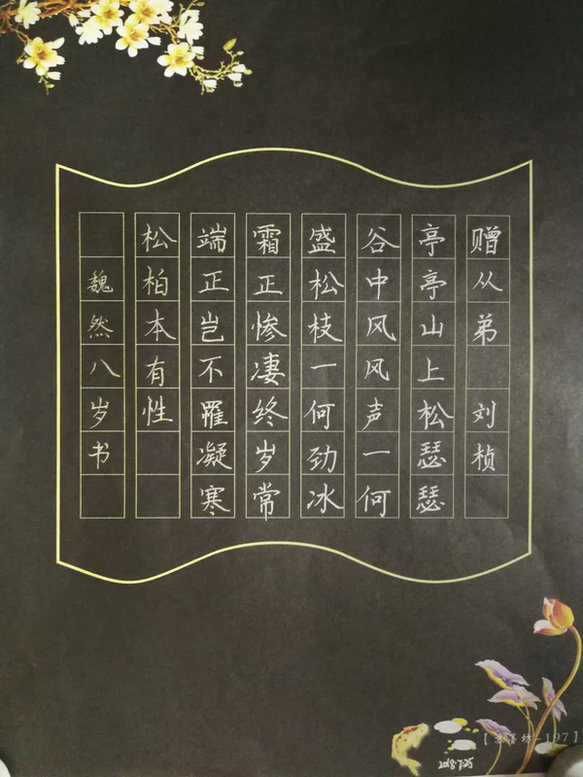 赠从弟 刘桢
亭亭山上松瑟瑟
谷中风风声一何
盛松枝一何劲冰
霜正惨凄终岁常
端正岂不罹凝寒
松柏本有性
魏然八岁书
2018.7.25